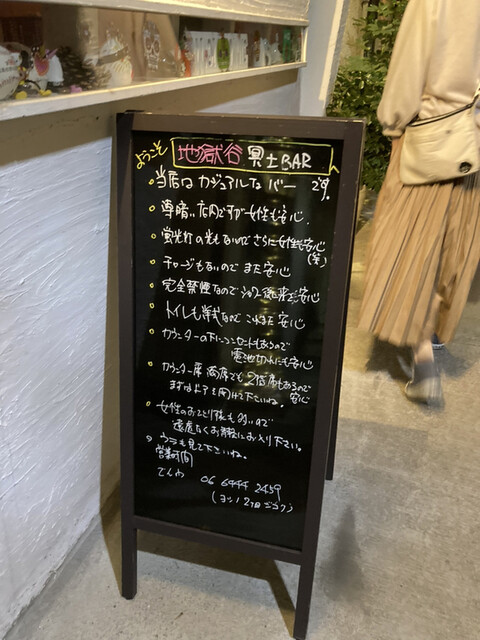 ようこそ 地獄谷 冥土BAR
当店はカジュアルなバーです。
薄暗い店内ですが女性も安心
蛍光灯の光もないのでさらに女性も安心
(笑)
チャージもないのでまた安心
完全禁煙なので
トイレも洋式なのでこれまた安心
カウンターの下にコンセントもあるので
電池切れにも安心
カウンター席満席でも2階席もあるので
安心
まずはドアを開けて下さいね。
女性のおひとり様も多いので
遠慮なくお気軽にお入り下さい。
ウラも見て下さいね。
営業時間
でんわ 06 6444 2459